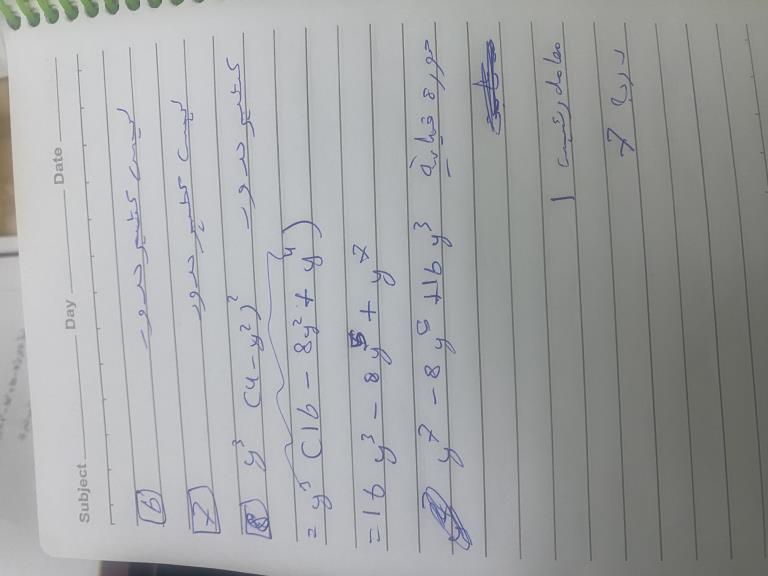 Subject Day Date
6 ليست كثير حدود
7 ليست كثير حدود
8 y³ (4 - y²)² كثير حدود
= y³ (16 - 8y² + y⁴)
= 16 y³ - 8y⁵ + y⁷
y⁷ - 8 y⁵ + 16 y³
معامل رئيسي 1
درجة 7